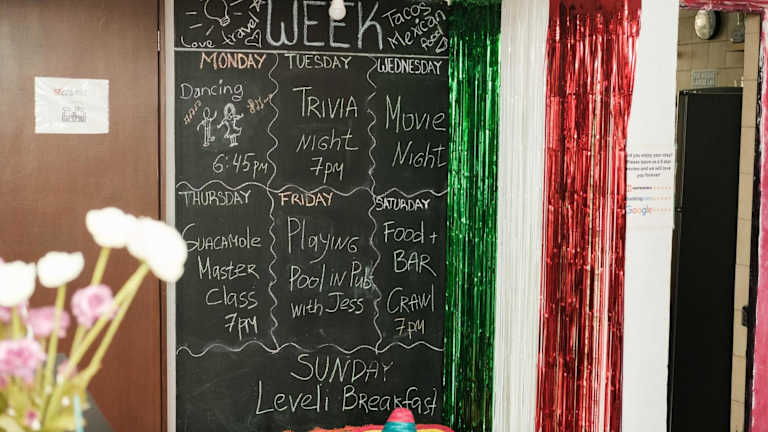 WEEK
Love
travel
Tacos
Mexican
food
MONDAY
Dancing
6:45pm
TUESDAY
TRIVIA
NIGHT
7pm
WEDNESDAY
Movie
Night
THURSDAY
GUACAMOLE
Master
Class
7pm
FRIDAY
Playing
Pool in Pub
with Jess
SATURDAY
Food +
BAR
CRAWL
7pm
SUNDAY
Leveli Breakfast
Did you enjoy your stay?
Please leave us a 5 star
review and we will love
you forever!
Google